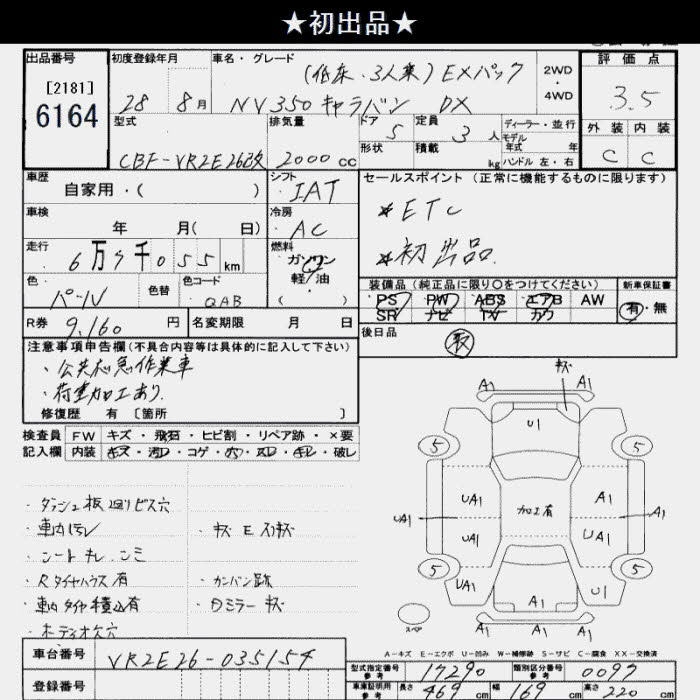 ★初出品★
出品番号
[2181]
6164
初度登録年月
28 8月
車名・グレード
(低床・3人乗) EXパック
NV350キャラバン DX
2WD
・
4WD
評価点
3.5
外装 内装
C C
型式
CBF-VR2E26改
排気量
2000 cc
ドア
5
形状
定員
3人
積載
kg
ディーラー・並行
モデル
年式 年
ハンドル 左・右
車歴
自家用・( )
シフト
IAT
車検
年 月( 日)
冷房
AC
走行
6万7千055km
燃料
ガソリン
軽/油
( )
色
パール
色替
色コード
QAB
R券 9,160円
名変期限 月 日
セールスポイント (正常に機能するものに限ります)
*ETC
*初出品
装備品(純正品に限り○をつけてください)
PS PW ABS エアB AW
SR ナビ TV カワ
新車保証書
有・無
後日品
取
注意事項申告欄(不具合内容等は具体的に記入して下さい)
・公共応急作業車
・荷室加工あり
修復歴 有 [箇所 ]
検査員 FW キズ・飛石・ヒビ割・リペア跡・×要
記入欄 内装 キズ・汚レ・コゲ・穴・スレ・キレ・破レ
・ダッシュ板廻りビス穴
・車内汚レ
・シートキレ、シミ
・Rタイヤハウス有
・車内タイヤ積込有
・オーディオ欠穴
・キズ E スリキズ
・カンバン跡
・Dミラーキズ
A1 A1 キズ
U1
5 5
UA1 A1
UA1 UA1 加工有 UA1 A1
5 5
UA1 U1
A1
A1 A1
スペア
A-キズ E-エクボ U-凹み W-補修跡 S-サビ C-腐食 XX-交換済
車台番号 VR2E26-035154
登録番号
型式指定番号
参考
17290
類別区分番号
参考
0097
車車証明用
参考
長さ 469 cm 幅 169 cm 高さ 220 cm